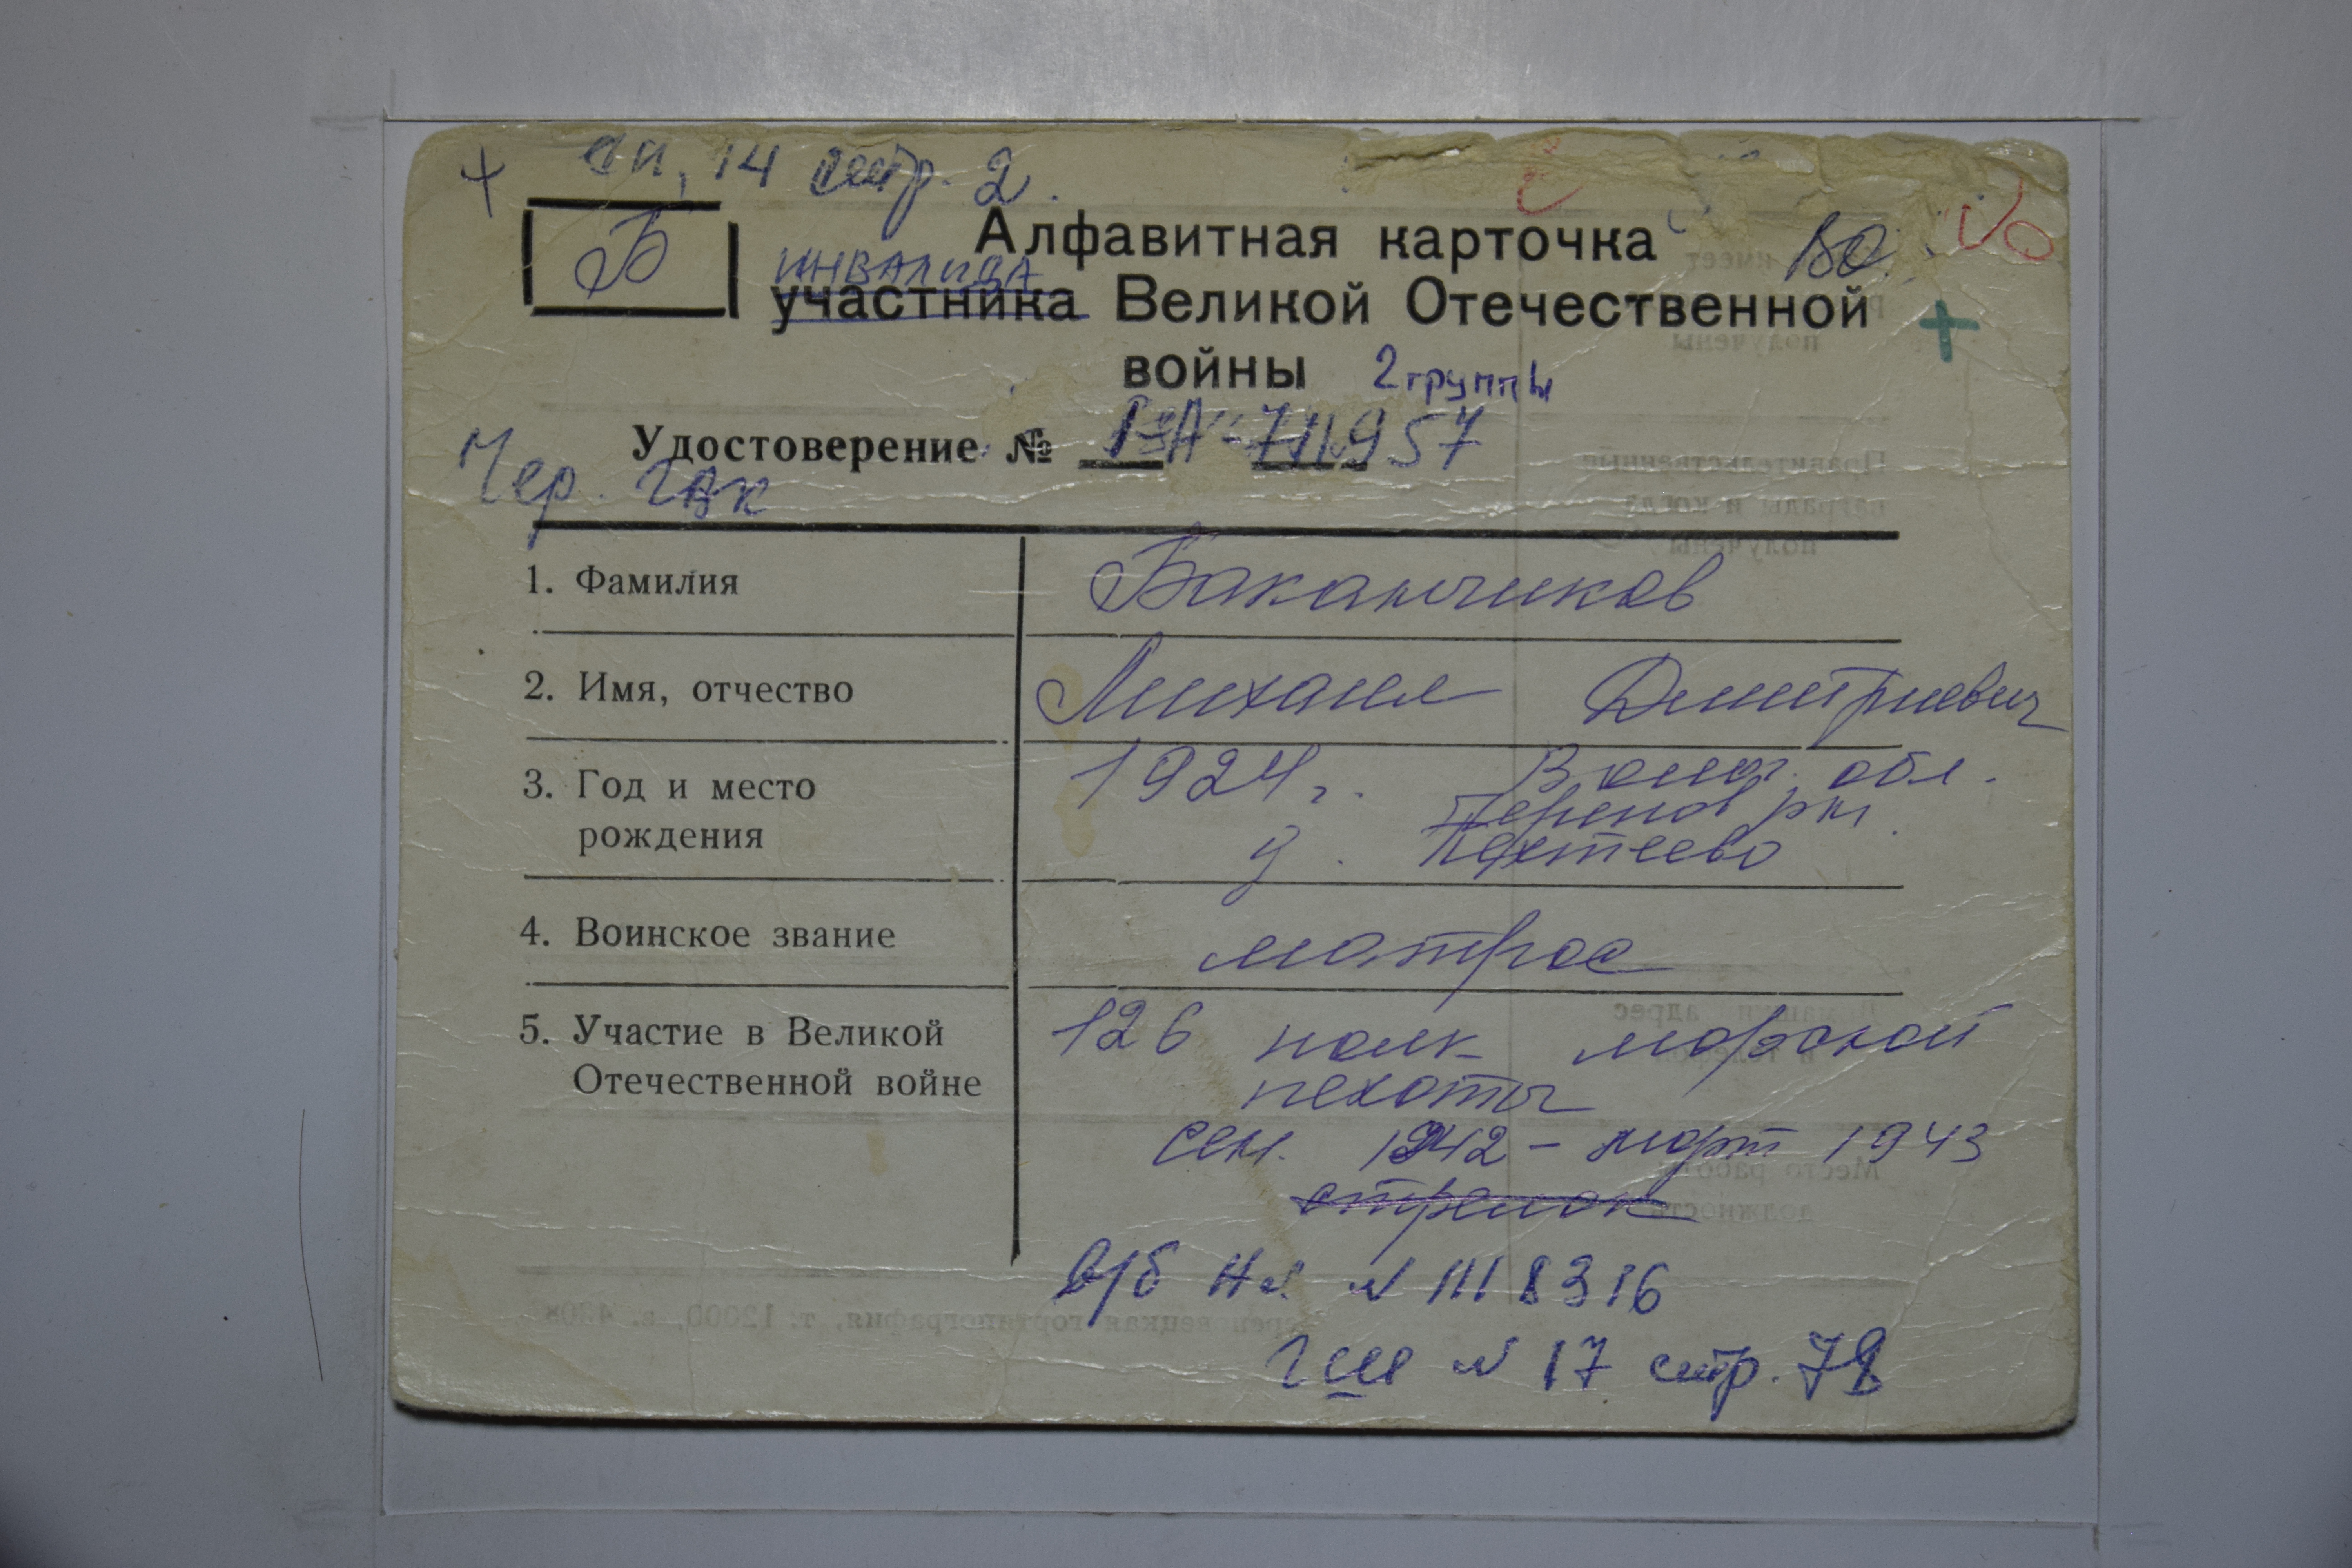 + сп. 14 стр. 2.
Б
Алфавитная карточка
ВО.
инвалида
участника Великой Отечественной +
войны 2 группы
Удостоверение №
957
Чер. ГВК
1. Фамилия Баканчиков
2. Имя, отчество Михаил Дмитриевич
3. Год и место рождения 1924 г. Волог. обл.
д. Пехтеево
4. Воинское звание матрос
5. Участие в Великой Отечественной войне 126 полк морской
пехоты
сен. 1942 - март 1943
стрелок
в/б Нк N III 8316
N 17 стр. 78